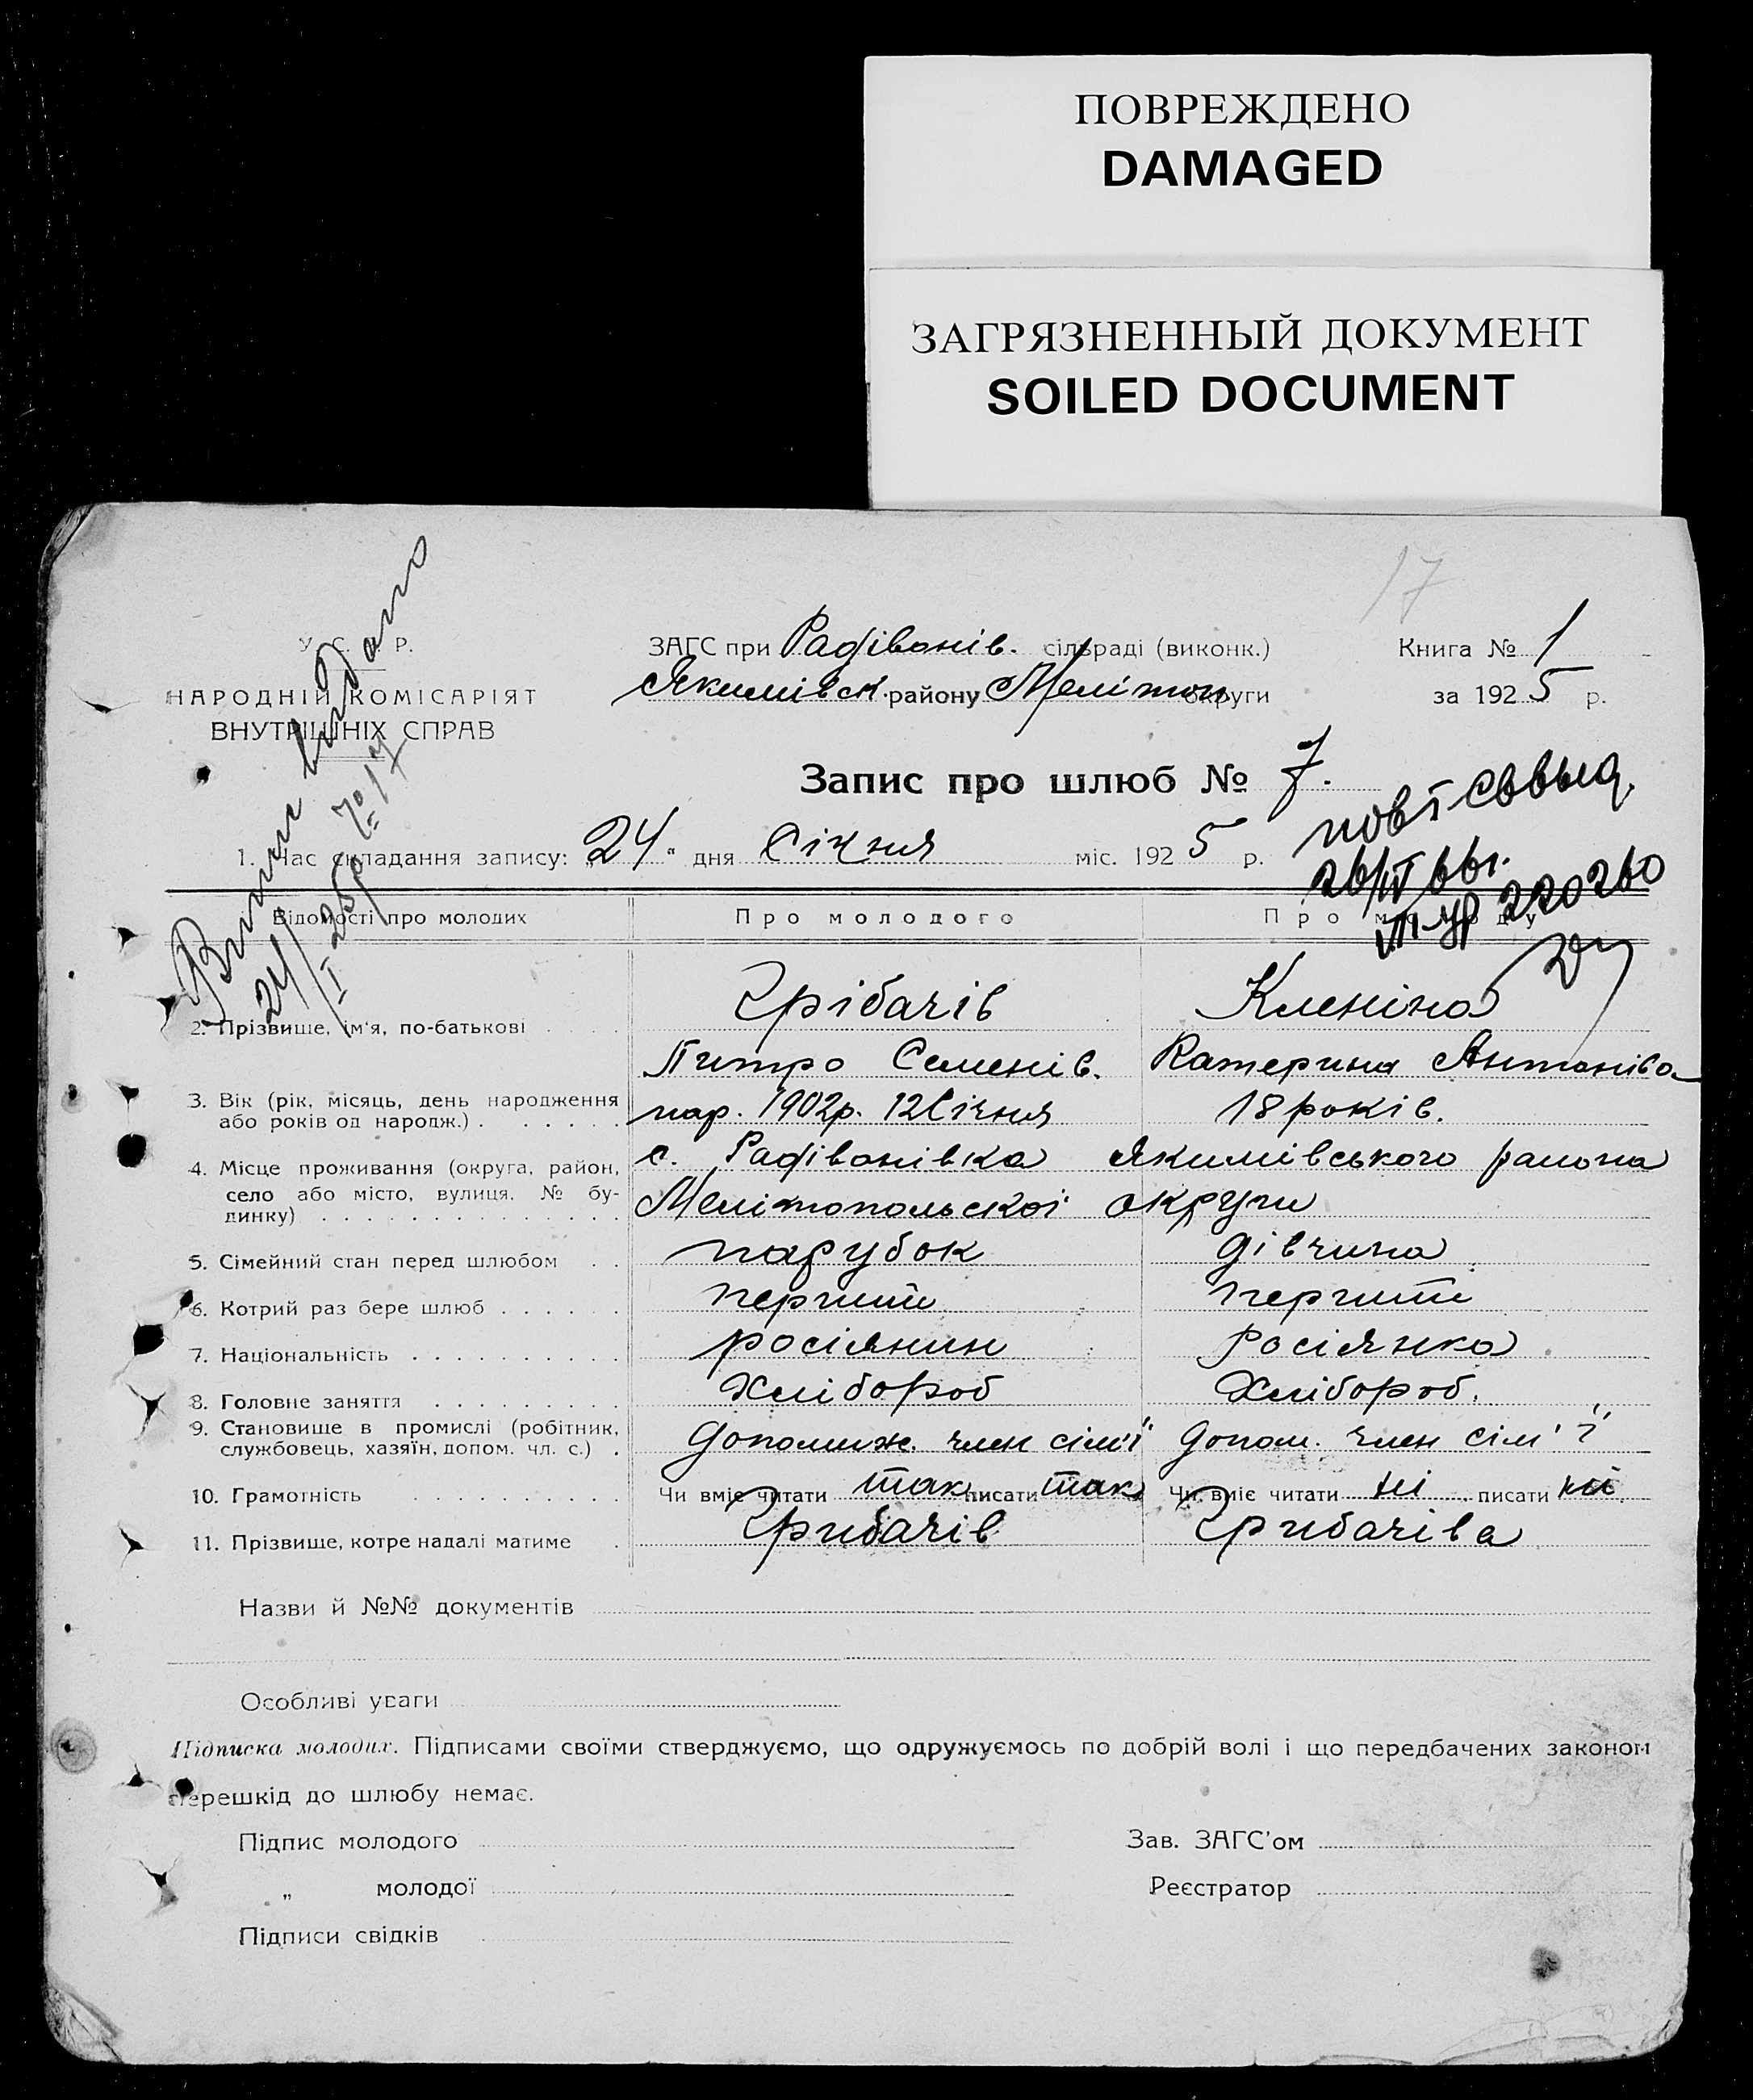 ПОВРЕЖДЕНО
DAMAGED
ЗАГРЯЗНЕННЫЙ ДОКУМЕНТ
SOILED DOCUMENT
17
У. С. Р.
НАРОДНІЙ КОМІСАРІЯТ
ВНУТРІШНІХ СПРАВ
ЗАГС при Радівонів. сільраді (виконк.)
Якимівськ. району Мелітоп округи
Книга № 1
за 1925 р.
Випис видано
24/I 25р № 17
Запис про шлюб № 7.
повт сввыд.
26/IV 66г.
220260
1. Час складання запису: „24“ дня Січня міс. 1925 р.
Відомості про молодих Про молодого Про молоду
2. Прізвище, ім'я, по-батькові
Грібачів Кленіна
Питро Семенів. Катерина Антонівa
3. Вік (рік, місяць, день народження
або років од народж.)
нар. 1902р. 12 Січня 18 років.
4. Місце проживання (округа, район,
село або місто, вулиця. № бу-
динку)
с. Радівонівка Якимівського района
Мелітопольскої округи
5. Сімейний стан перед шлюбом парубок дівчина
6. Котрий раз бере шлюб перший перший
7. Національність росіянин росіянка
8. Головне заняття Хлібороб Хлібороб.
9. Становище в промислі (робітник,
службовець, хазяїн, допом. чл. с.)
допомиж. член сім'ї допом. член сім'ї
10. Грамотність Чи вміє читати так писати так Чи вміє читати ні писати ні
11. Прізвище, котре надалі матиме Грибачів Грибачіва
Назви й №№ документів
Особливі уваги
Підписка молодих. Підписами своїми стверджуємо, що одружуємось по добрій волі і що передбачених законом
перешкід до шлюбу немає.
Підпис молодого Зав. ЗАГС'ом
„ молодої Реєстратор
Підписи свідків